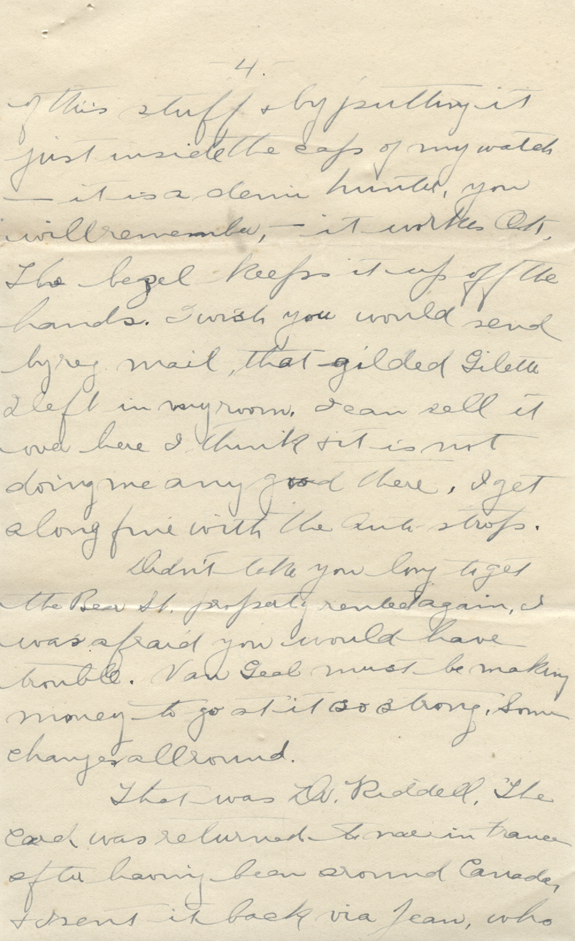 4.
of this stuff & by putting it
just inside the cap of my watch
— it is a demi hunter, you
will remember, — it works O.K.
The bezel keeps it up off the
hands. I wish you would send
by reg mail, that gilded Gilette
I left in my room. I can sell it
over here I think & it is not
doing me any good there, I get
along fine with the Auto strop.
Didn't take you long to get
the Bear St. property rented again, I
was afraid you would have
trouble. Van Geal must be making
money to go at it so strong. Some
changes all round.
That was Dr. Riddell. The
card was returned to me in France
after having been around Canada,
& I sent it back via Jean, who